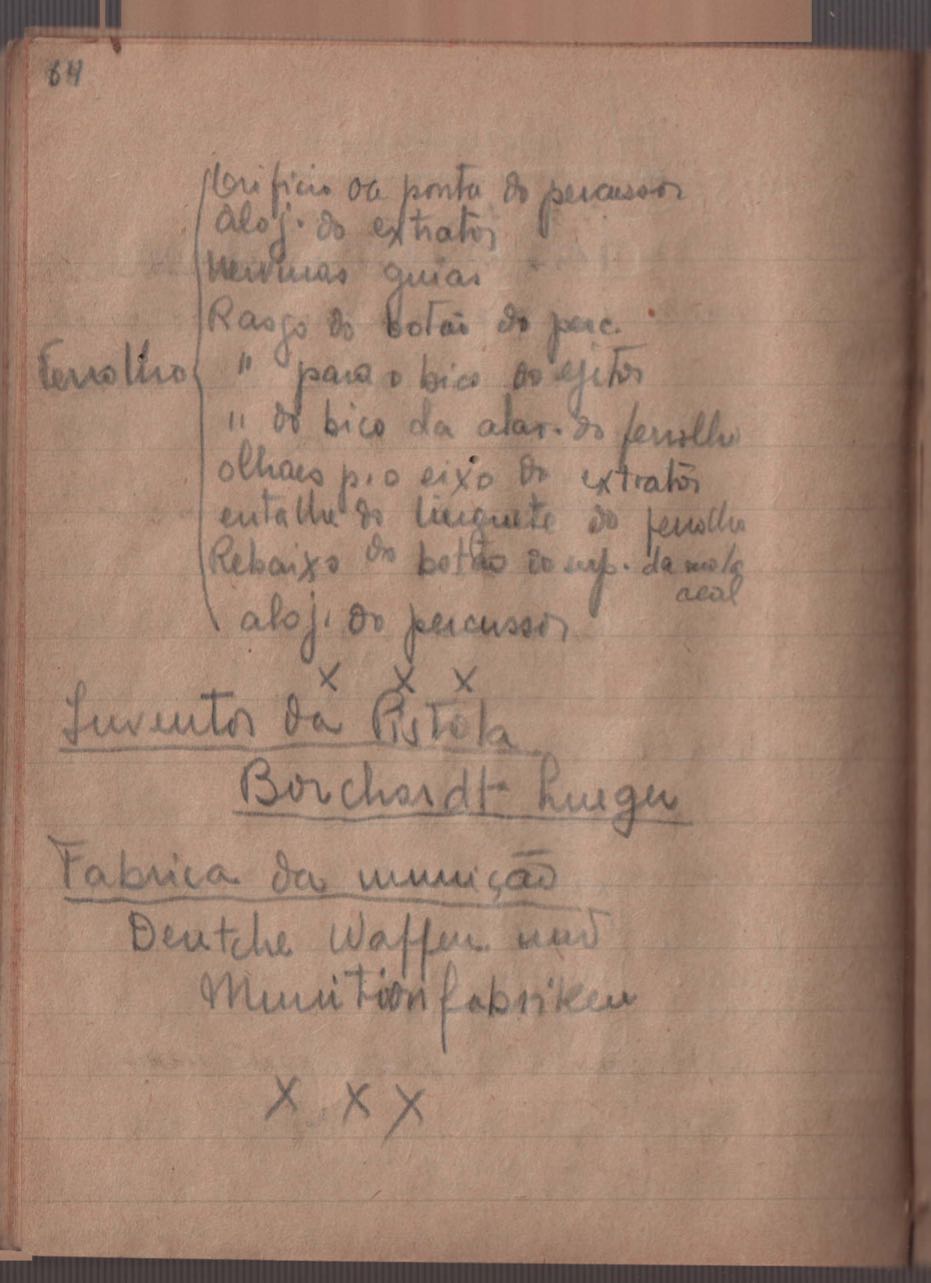 64
Orificio da ponta do percussor
aloj. do extrator
Nervuras guias
Rasgo do botão do perc.
Ferrolho " para o bico do ejetor
" do bico da alav. do ferrolho
olhaes p. o eixo do extrator
entalhe do linguete do ferrolho
Rebaixo do botão do da mola
acal
aloj. do percussor
x x x
Inventor da Pistola
Borchardt Lueger
Fabrica da munição
Deutche Waffen und
Munition fabriken
x x x